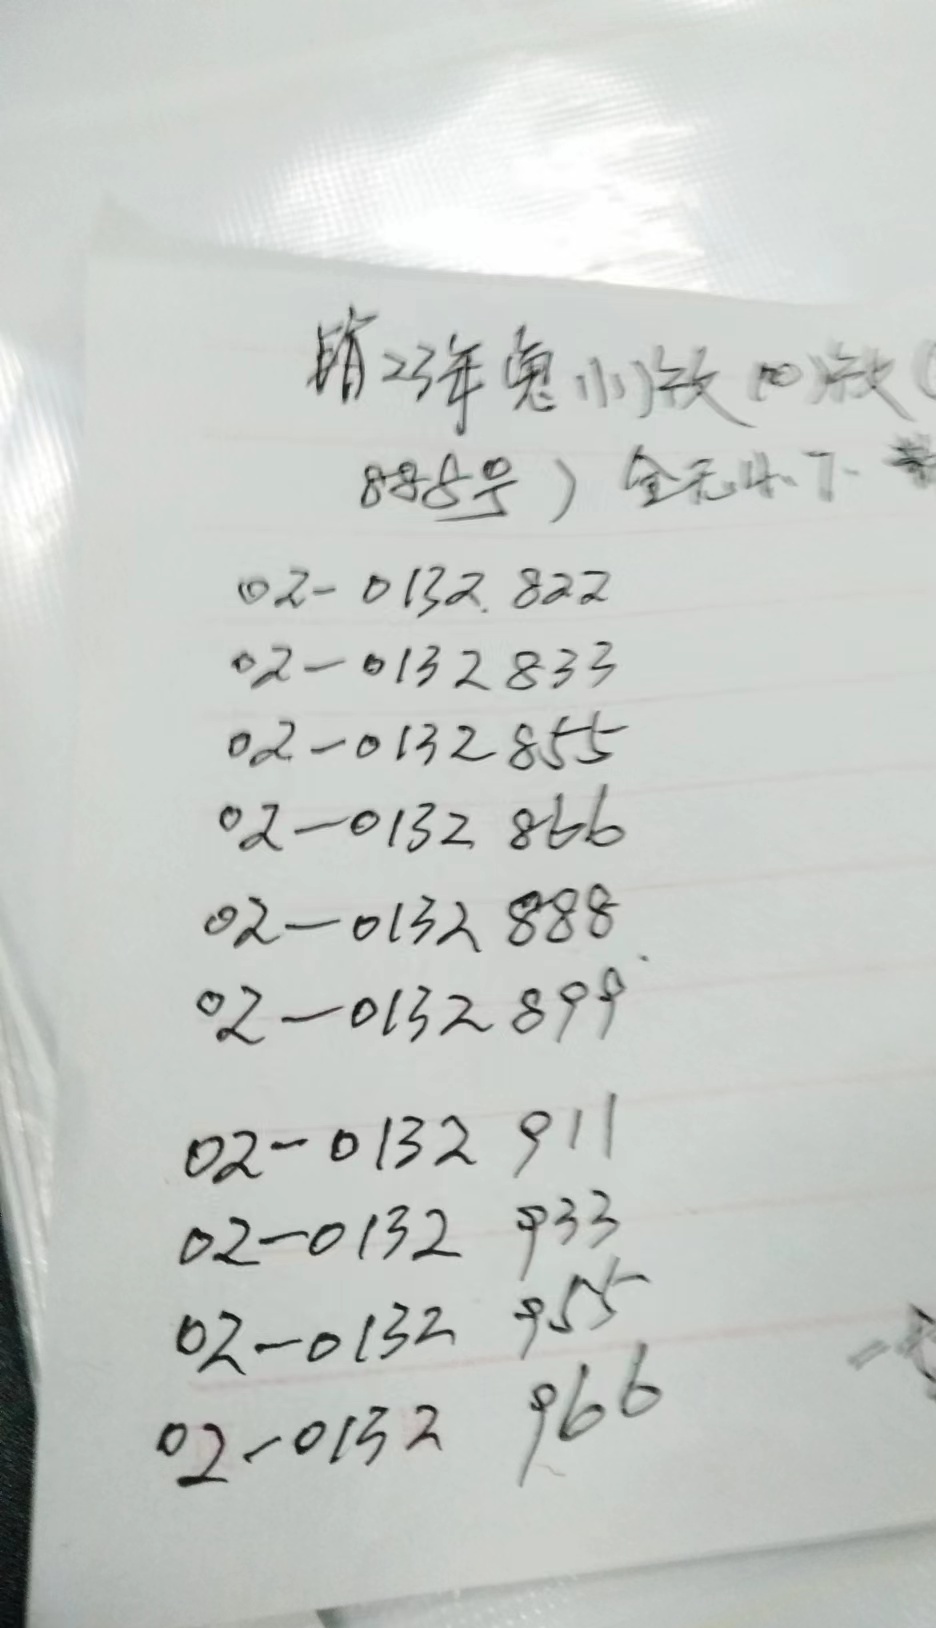 销23年兔小放10放(
888号)全无4.下
02-0132.822
02-0132833
02-0132855
02-0132 866
02-0132 888
02-0132 899
02-0132 911
02-0132 933
02-0132 955
02-0132 966